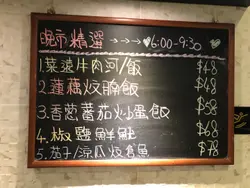 晚市精選 →→→→ 6:00-9:30
1.菜遠片肉河/飯 $48
2.蓮藕炆腩飯 $48
3.香葱蕃茄炒蛋飯 $68
4.椒鹽鮮魷 $68
5.茄子/涼瓜炆 魚 $78